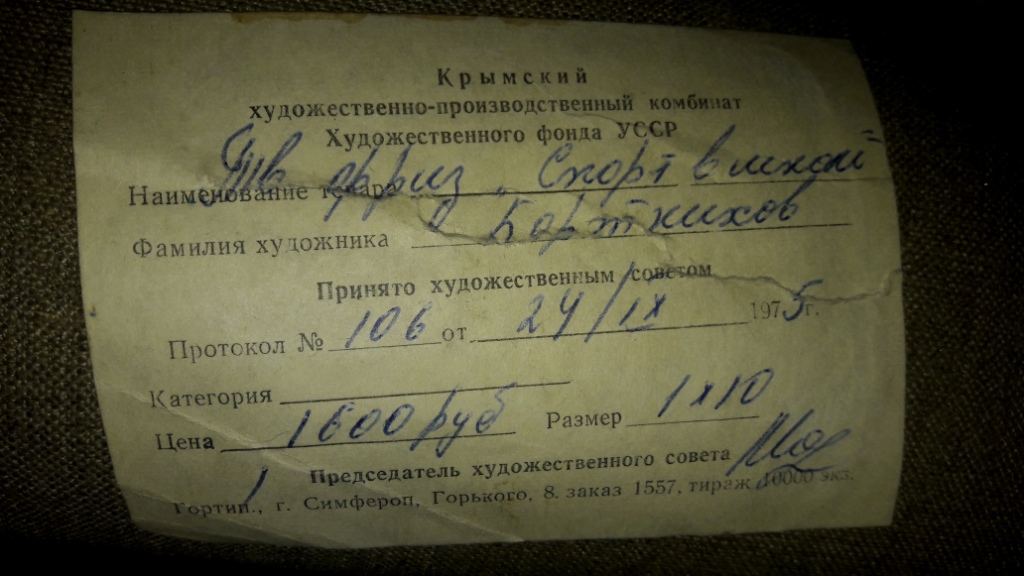 Крымский
художественно-производственный комбинат
Художественного фонда УССР
Наименование товара фриз „Спорт в
Фамилия художника Бортников
Принято художественным советом
Протокол № 106 от 24/IX 1975г.
Категория
Цена 1600 руб Размер 1х10
Председатель художественного совета
Гортип., г. Симфероп, Горького, 8. заказ 1557, тираж 10000 экз.